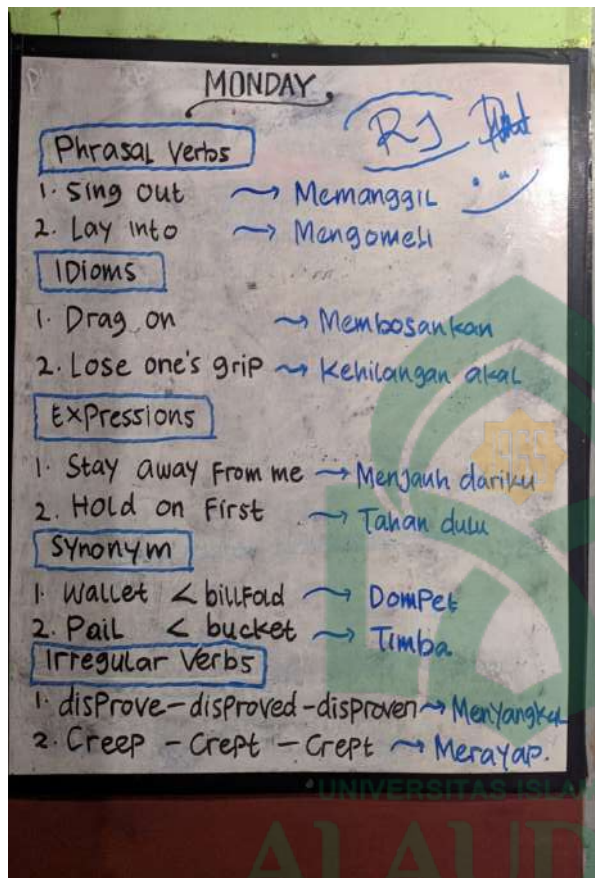 MONDAY
RJ
Phrasal Verbs
1. Sing out → Memanggil
2. Lay into → Mengomeli
IDioms
1. Drag on → Membosankan
2. Lose one's grip → Kehilangan akal
Expressions
1. Stay away From me → Menjauh dariku
2. Hold on First → Tahan dulu
Synonym
1. Wallet < billfold → Dompet
2. Pail < bucket → Timba
Irregular Verbs
1. disprove - disproved - disproven → Menyangkal
2. Creep - Crept - Crept → Merayap.
UNIVERSITAS ISLAM
ALAUD